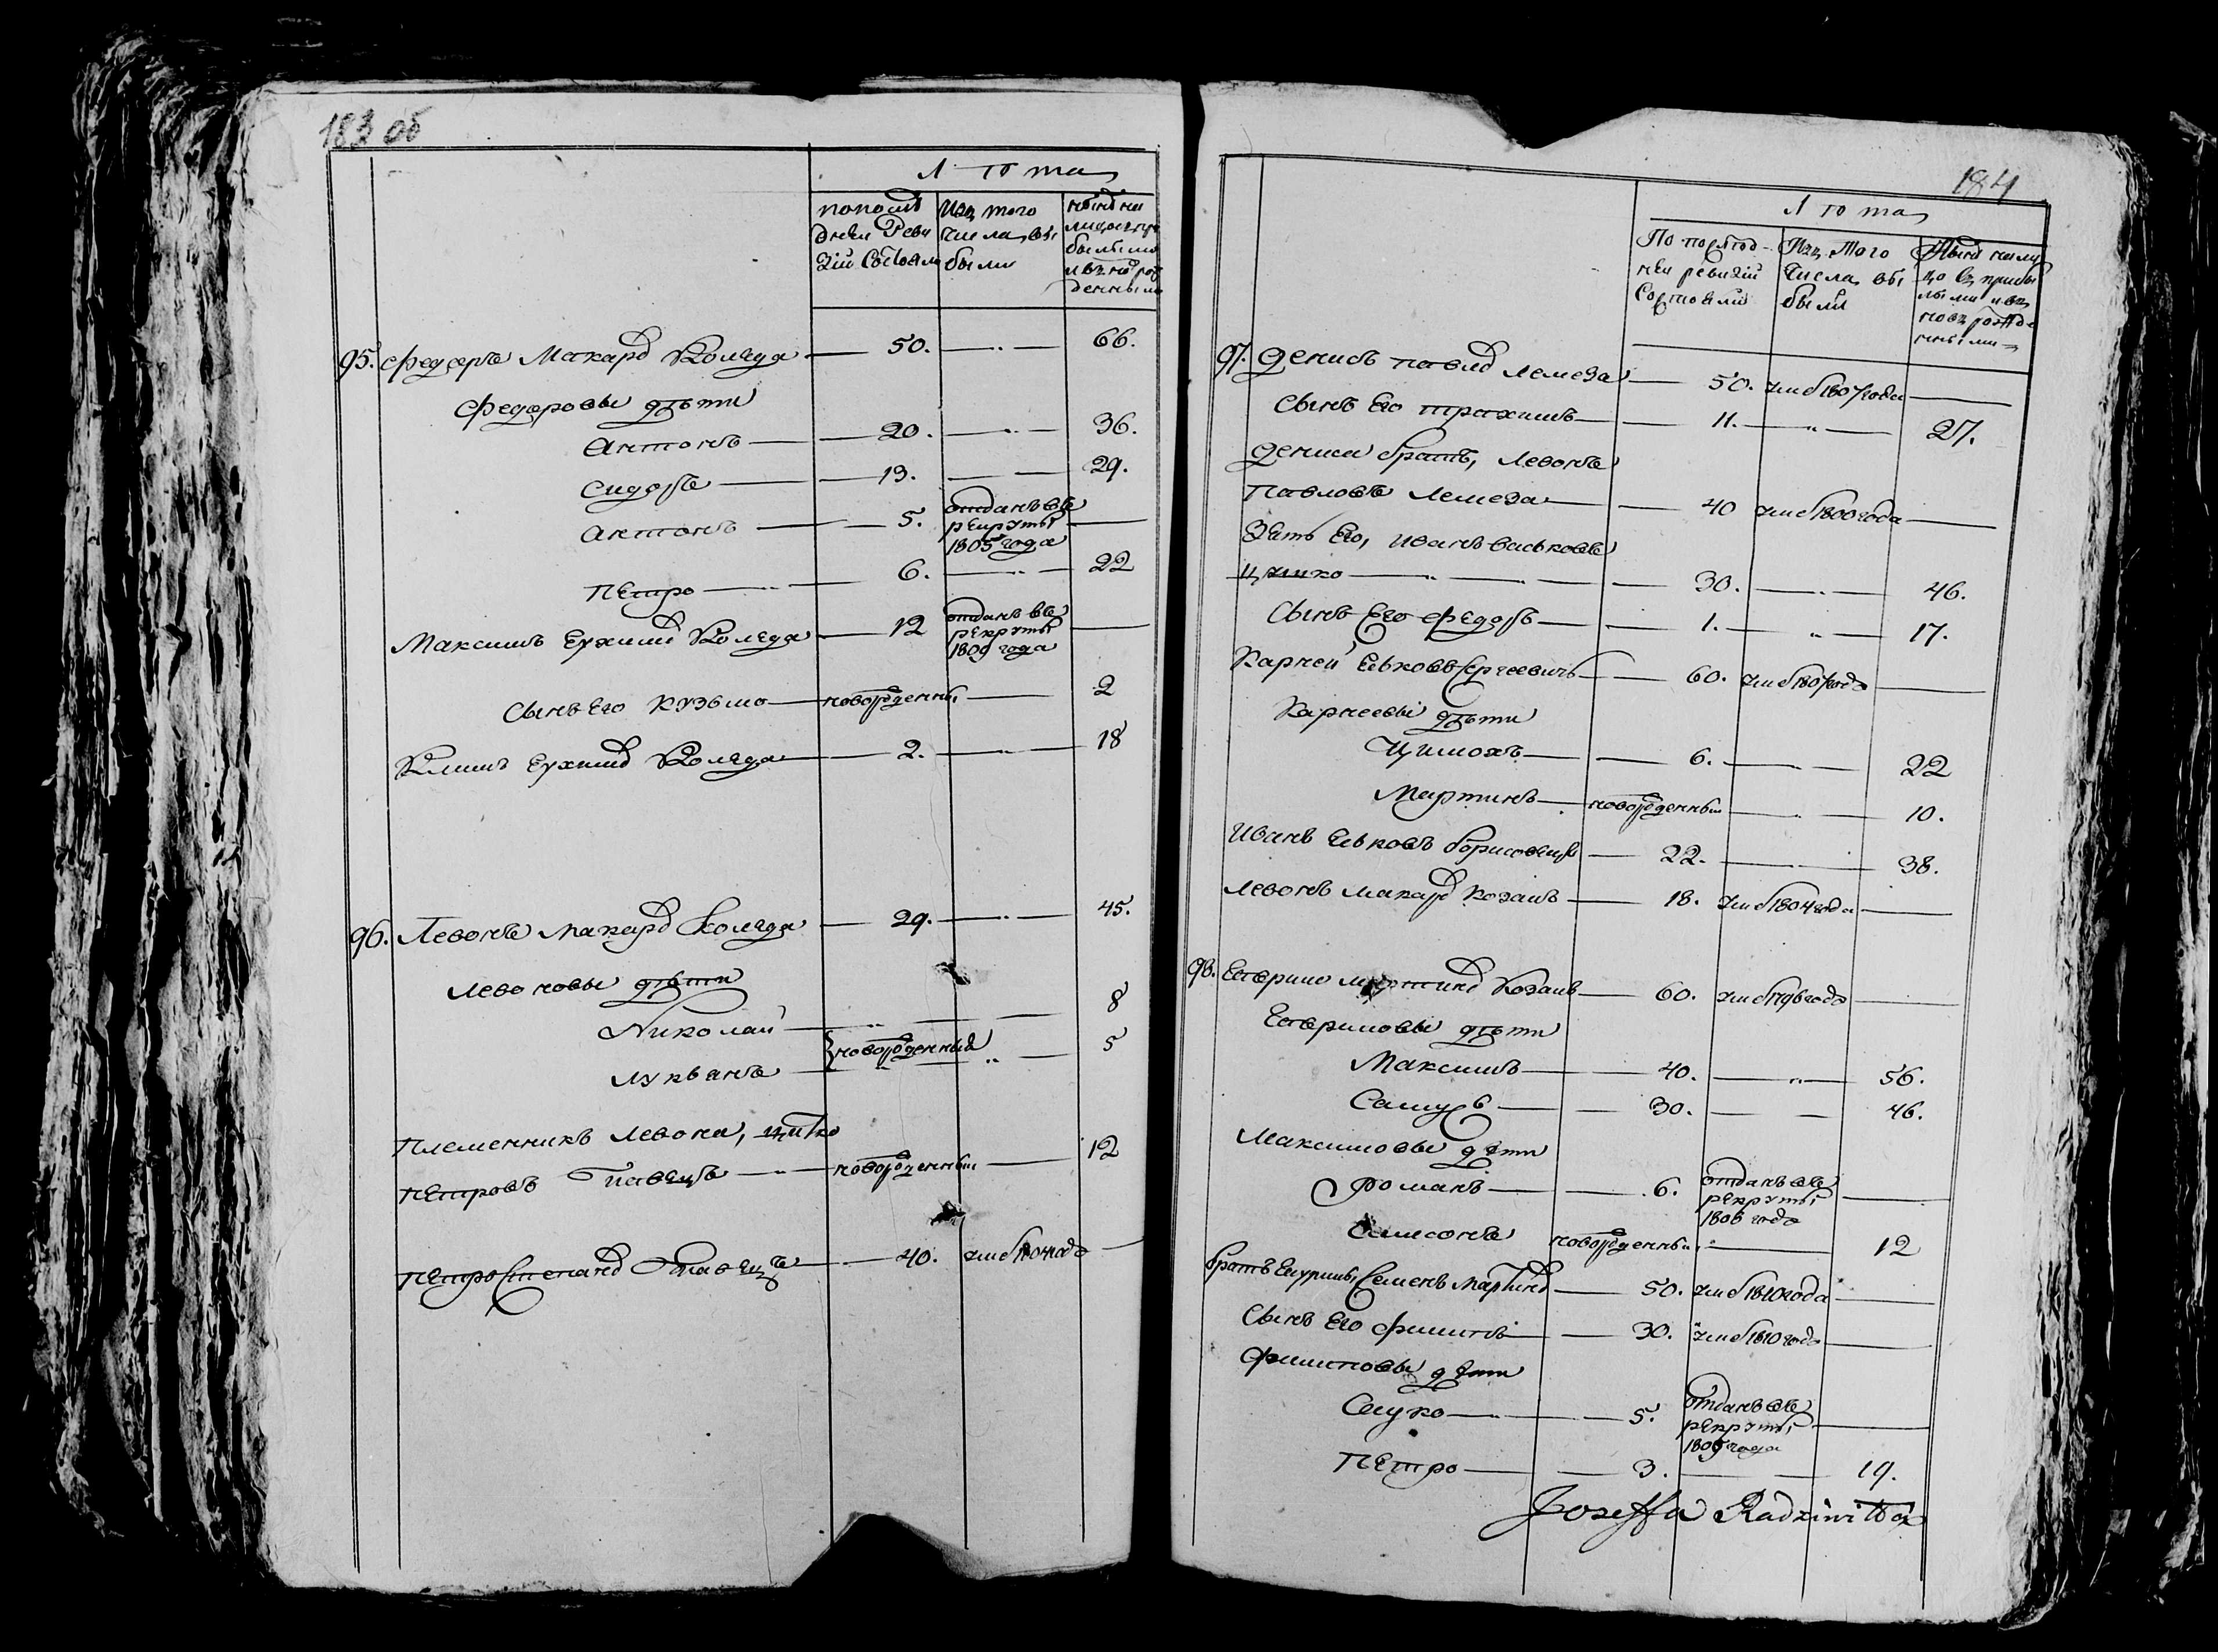 183 об
Лѣта
по послѣ
дней Реви
зіи Состояло
Изъ того
числа вы
были
нынѣ на
лицо съ при
былыми
и въ новорож
денными
95. Федоръ Макаров Коляда — 50. — „ — 66.
Федоровы дѣти
Антонъ — 20. — „ — 36.
Сидоръ — 13. — — 29.
Антонъ — 5. отданъ въ
рекруты
1805 года —
Петро — 6. — „ — 22
Максимъ Ехимов Коляда — 12 отданъ въ
рекруты
1809 года —
Сынъ Его Кузьма — новорожденны — 2
Климъ Ехимов Коляда — 2. — „ — 18
96. Левонъ Макаров Коляда — 29. — „ — 45.
Левоновы дѣти
Николай — „ — — 8
Лукьянъ — новорожденныя „ — 5
Племенникъ Левона, Цитко
Петровъ — „ — новорожденный — 12
Петро Степанов — 40. умеръ года —
184
Лѣта
По послѣд-
ней ревизіи
Состояло
Изъ Того
Числа вы
были
Нынѣ на ли
цо съ прибы
лыми и въ
новь рожде
нными
97. Денисъ Павлов Лемеза — 50. умер 1807 года —
Сынъ Его Трахимъ — 11. — „ — 27.
Дениса братъ, Левонъ
Павловъ Лемеза — 40 умер 1800 года —
Зять Его, Иванъ Васьковъ
— „ — 30. — „ — 46.
Сынъ Его Федоръ — 1. — „ — 17.
Карней Еськовъ Сергеевичъ — 60. умер 1807 года —
Карнеевы дѣти
Цимохъ — 6. — „ — 22
Мартинъ — новорожденный — „ — 10.
Иванъ Еськовъ Борисовецъ — 22. — „ — 38.
Левонъ Макаров Козакъ — 18. умер 1804 года —
98. Мартинов Козакъ — 60. умер 1796 года —
дѣти
Максимъ — 40. — „ — 56.
Самусь — 30. — — 46.
Максимовы дѣти
Романъ — 6. отданъ въ
рекруты
1806 года —
Самсонъ новорожденный — 12
братъ Семенъ Мартинов — 50. умер 1810 года —
Сынъ Его Филипъ — 30. умер 1810 года —
Филиповы дѣти
— „ — 5. отданъ въ
рекруты
года —
Петро — 3. — — 19.
Joseffa Radziwiłła